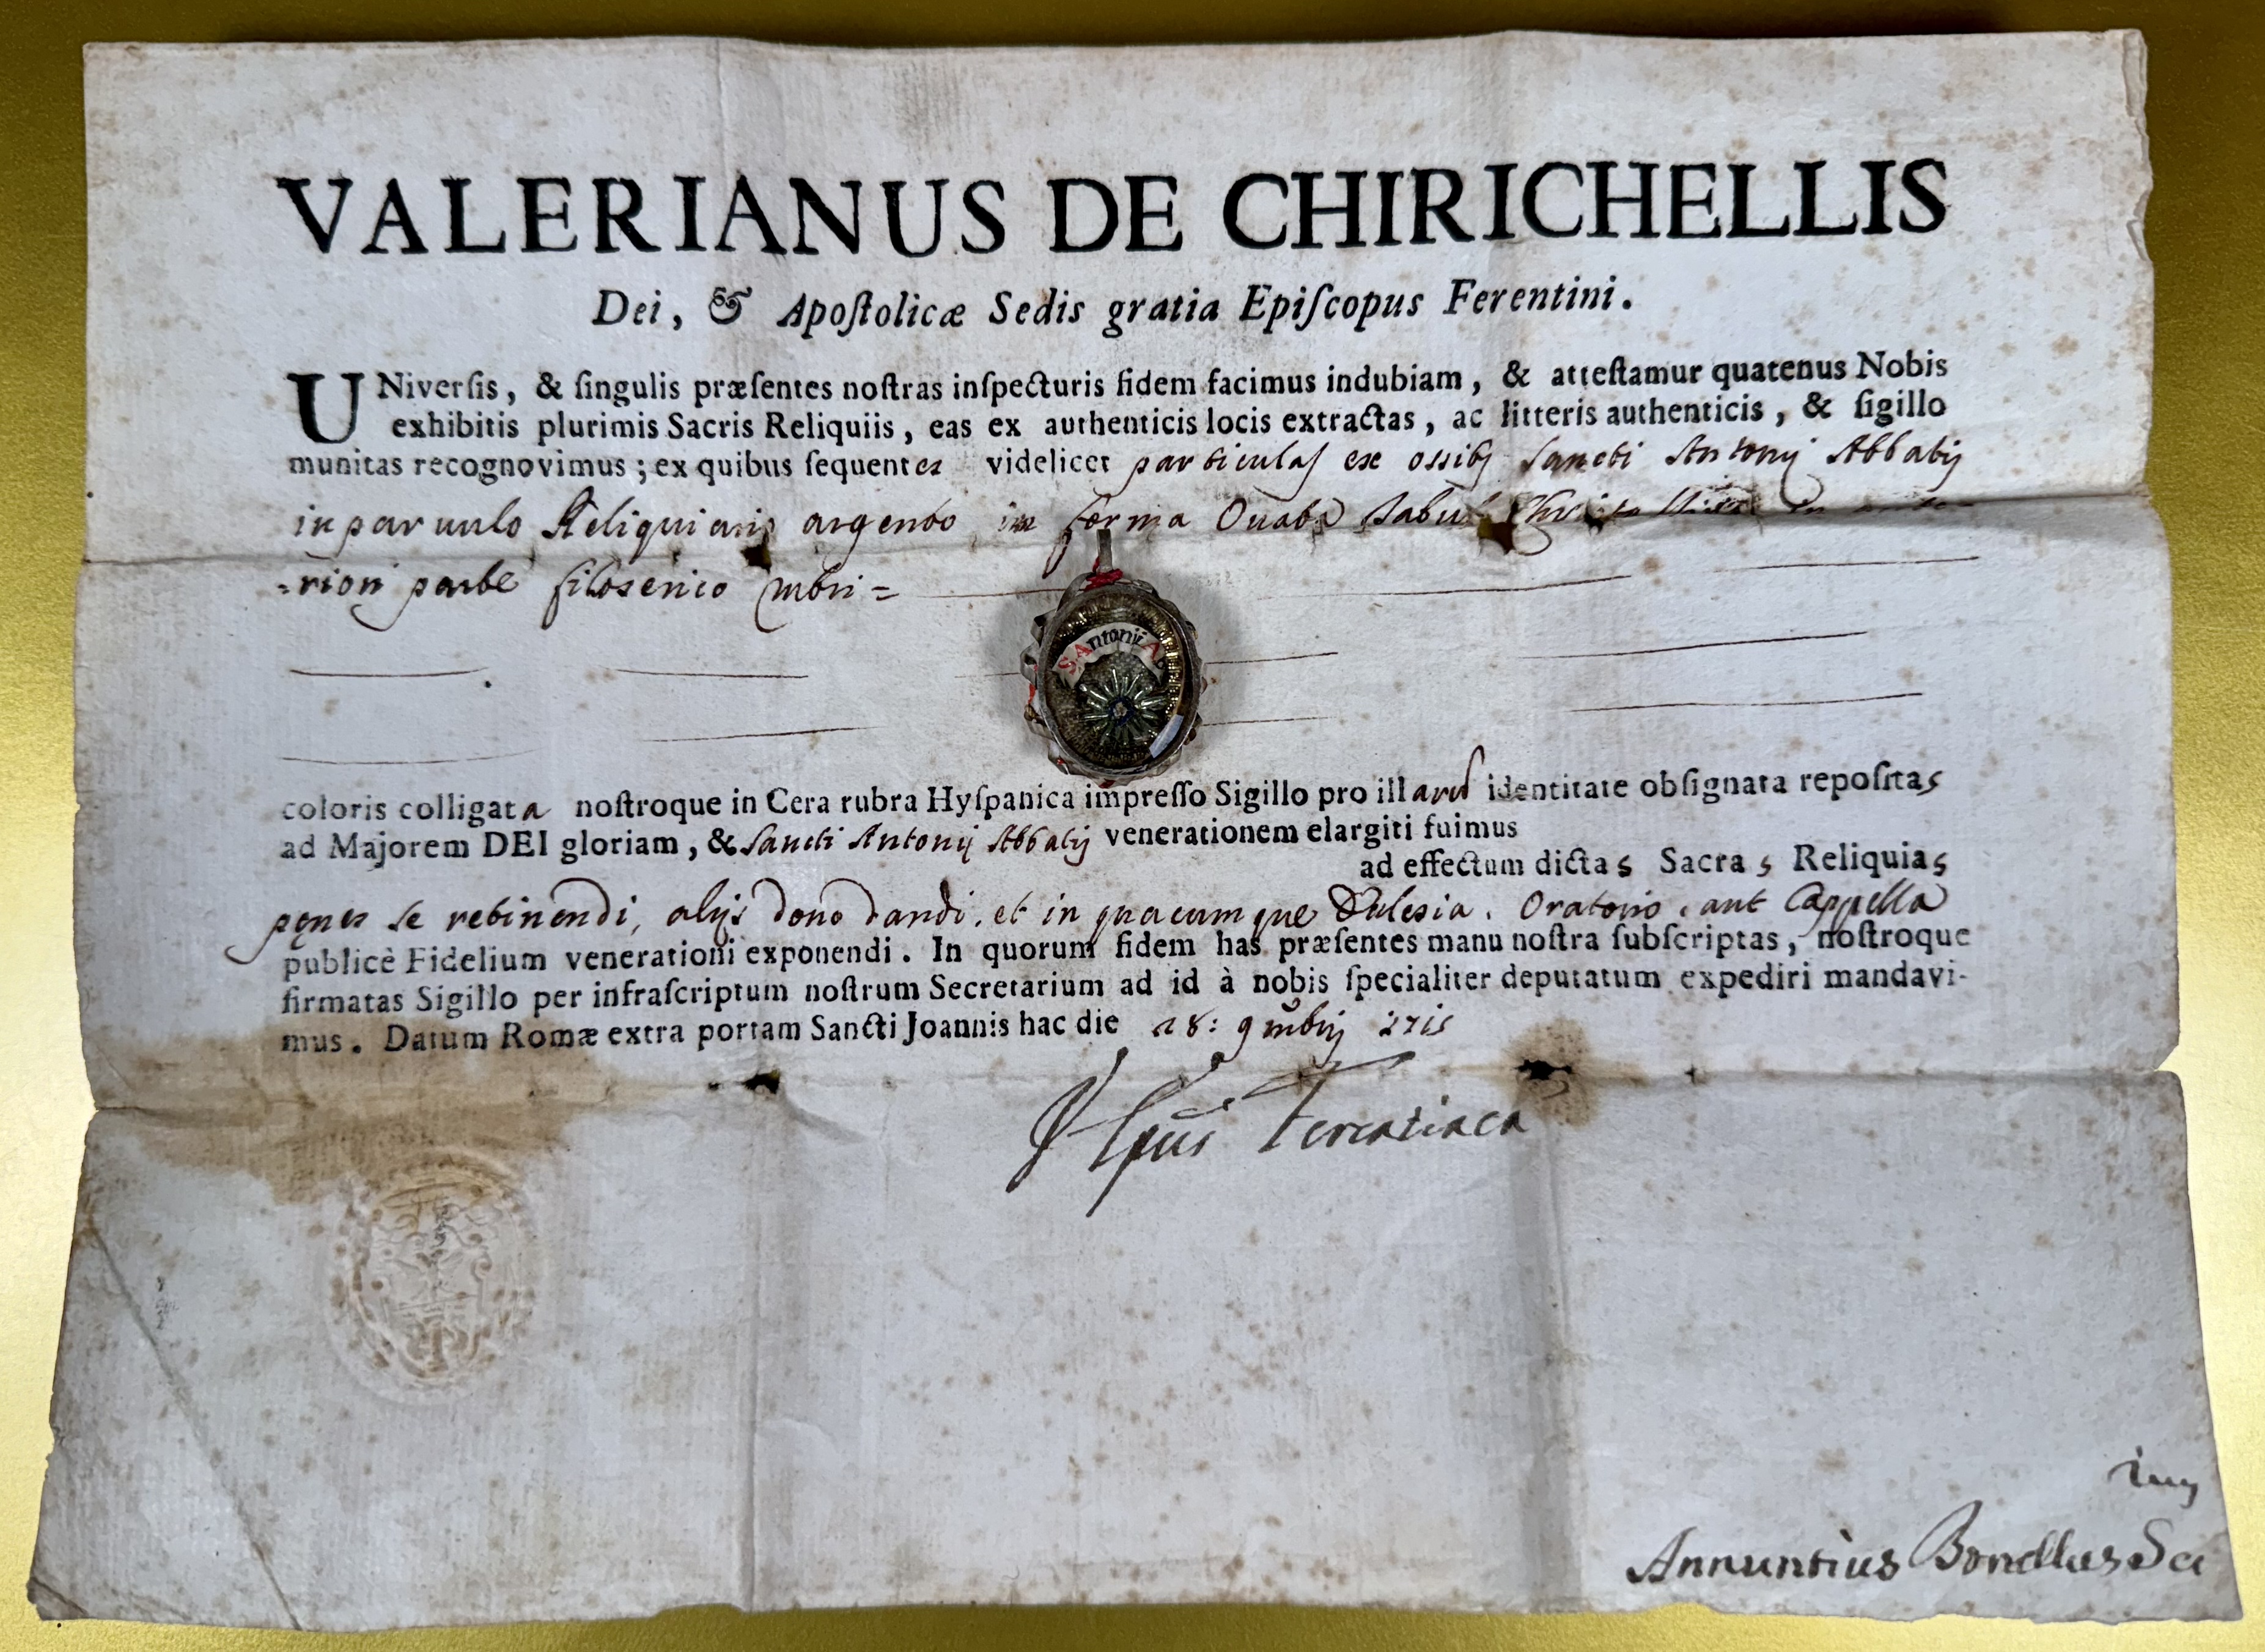 VALERIANUS DE CHIRICHELLIS
Dei, & Apoſtolicæ Sedis gratia Epiſcopus Ferentini.
UNiverſis, & ſingulis præſentes noſtras inſpecturis fidem facimus indubiam, & atteſtamur quatenus Nobis
exhibitis plurimis Sacris Reliquiis, eas ex authenticis locis extractas, ac litteris authenticis, & ſigillo
munitas recognovimus; ex quibus ſequentes videlicet particulas ex ossib9 Sancti Antonij Abbatis
in parvulo Reliquiario argenteo in forma Ovata
riori parte filo serico rubri =
S Antonii Ab
coloris colligata noſtroque in Cera rubra Hyſpanica impreſſo Sigillo pro illarū identitate obſignata repoſitas
ad Majorem DEI gloriam, & Sancti Antonij Abbatis venerationem elargiti fuimus
ad effectum dictas Sacras Reliquias
penes se retinendi, alijs dono dandi, et in quacumque Ecclesia, Oratorio, aut Cappella
publicè Fidelium venerationi exponendi. In quorum fidem has præſentes manu noſtra ſubſcriptas, noſtroque
firmatas Sigillo per infraſcriptum noſtrum Secretarium ad id à nobis ſpecialiter deputatum expediri mandavi-
mus. Datum Romæ extra portam Sancti Joannis hac die 28: 9mbris 1715
Annuntius Bonellus